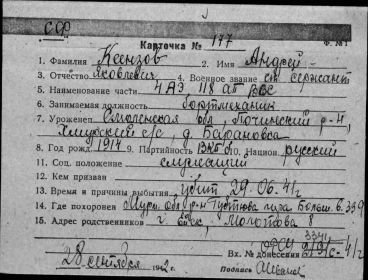 ССФ
Карточка № 177
Ф. № 1
1. Фамилия Ксензов 2. Имя Андрей
3. Отчество Яковлевич 4. Военное звание ст. сержант
5. Наименование части 4 АЭ 118 ап ВВС
6. Занимаемая должность бортмеханик
7. Уроженец Смоленская обл., Починский р-н,
с/с, д. Барановка
8. Год рожд. 1914 9. Партийность ВКП(б) Национ. русский
11. Соц. положение служащий
12. Кем призван
13. Время и причины выбытия убит 29.06.41г
14. Где похоронен Мурм. обл. р-н губа
15. Адрес родственников г. Ейск, Молотова 8
28 сентября 1942 г.
Вх. № донесения
Подпись